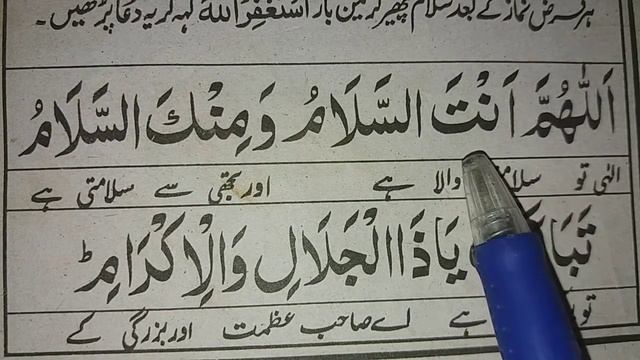 ہر فرض نماز کے بعد سلام پھیر کر تین بار اَسْتَغْفِرُ اللّٰهَ کہہ کر یہ دعا پڑھیں۔
اَللّٰهُمَّ اَنْتَ السَّلَامُ وَمِنْكَ السَّلَامُ
الٰہی تو سلامتی والا ہے اور تجھی سے سلامتی ہے
يَاذَا الْجَلَالِ وَالْاِكْرَامِ ط
ہے اے صاحب عظمت اور بزرگی کے